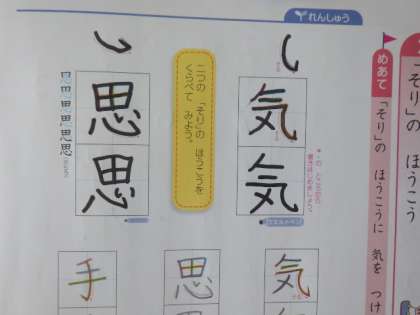 れんしゅう
「そり」の ほうこう
めあて
「そり」の ほうこうに 気を つけ
気
気
二つの 「そり」の ほうこうを
くらべて みよう。
思
思
気
思
手